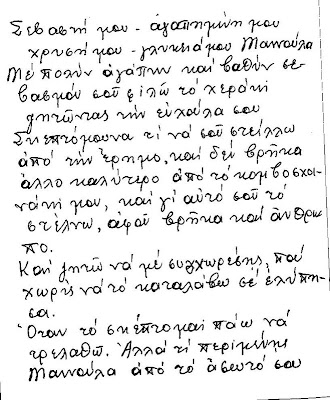 Σεβαστή μου - ἀγαπημένη μου
χρυσή μου - γλυκειά μου Μαννούλα
Μέ πολύν ἀγάπην καί βαθύν σε-
βασμόν σοῦ φιλῶ τό χεράκι
ζητῶντας τήν εὐχοῦλα σου
Σκεπτόμουνα τί νά σοῦ στείλλω
ἀπό τήν ἔρημο, καί δέν βρῆκα
ἄλλο καλύτερο ἀπό τό κομβοσχοι-
νάκι μου, καί γι αὐτό σοῦ τό
στέλνω, ἀφοῦ βρῆκα καί ἄνθρω
πο.
Καί ζητῶ νά μέ συγχωρέσης, πού
χωρίς νά τό καταλάβω σέ ἐλύπη-
σα.
Ὅταν τό σκέπτομαι πάω νά
τρελαθῶ. Ἀλλά τί περιμένεις
Μαννούλα ἀπό τό ἄσωτό σου